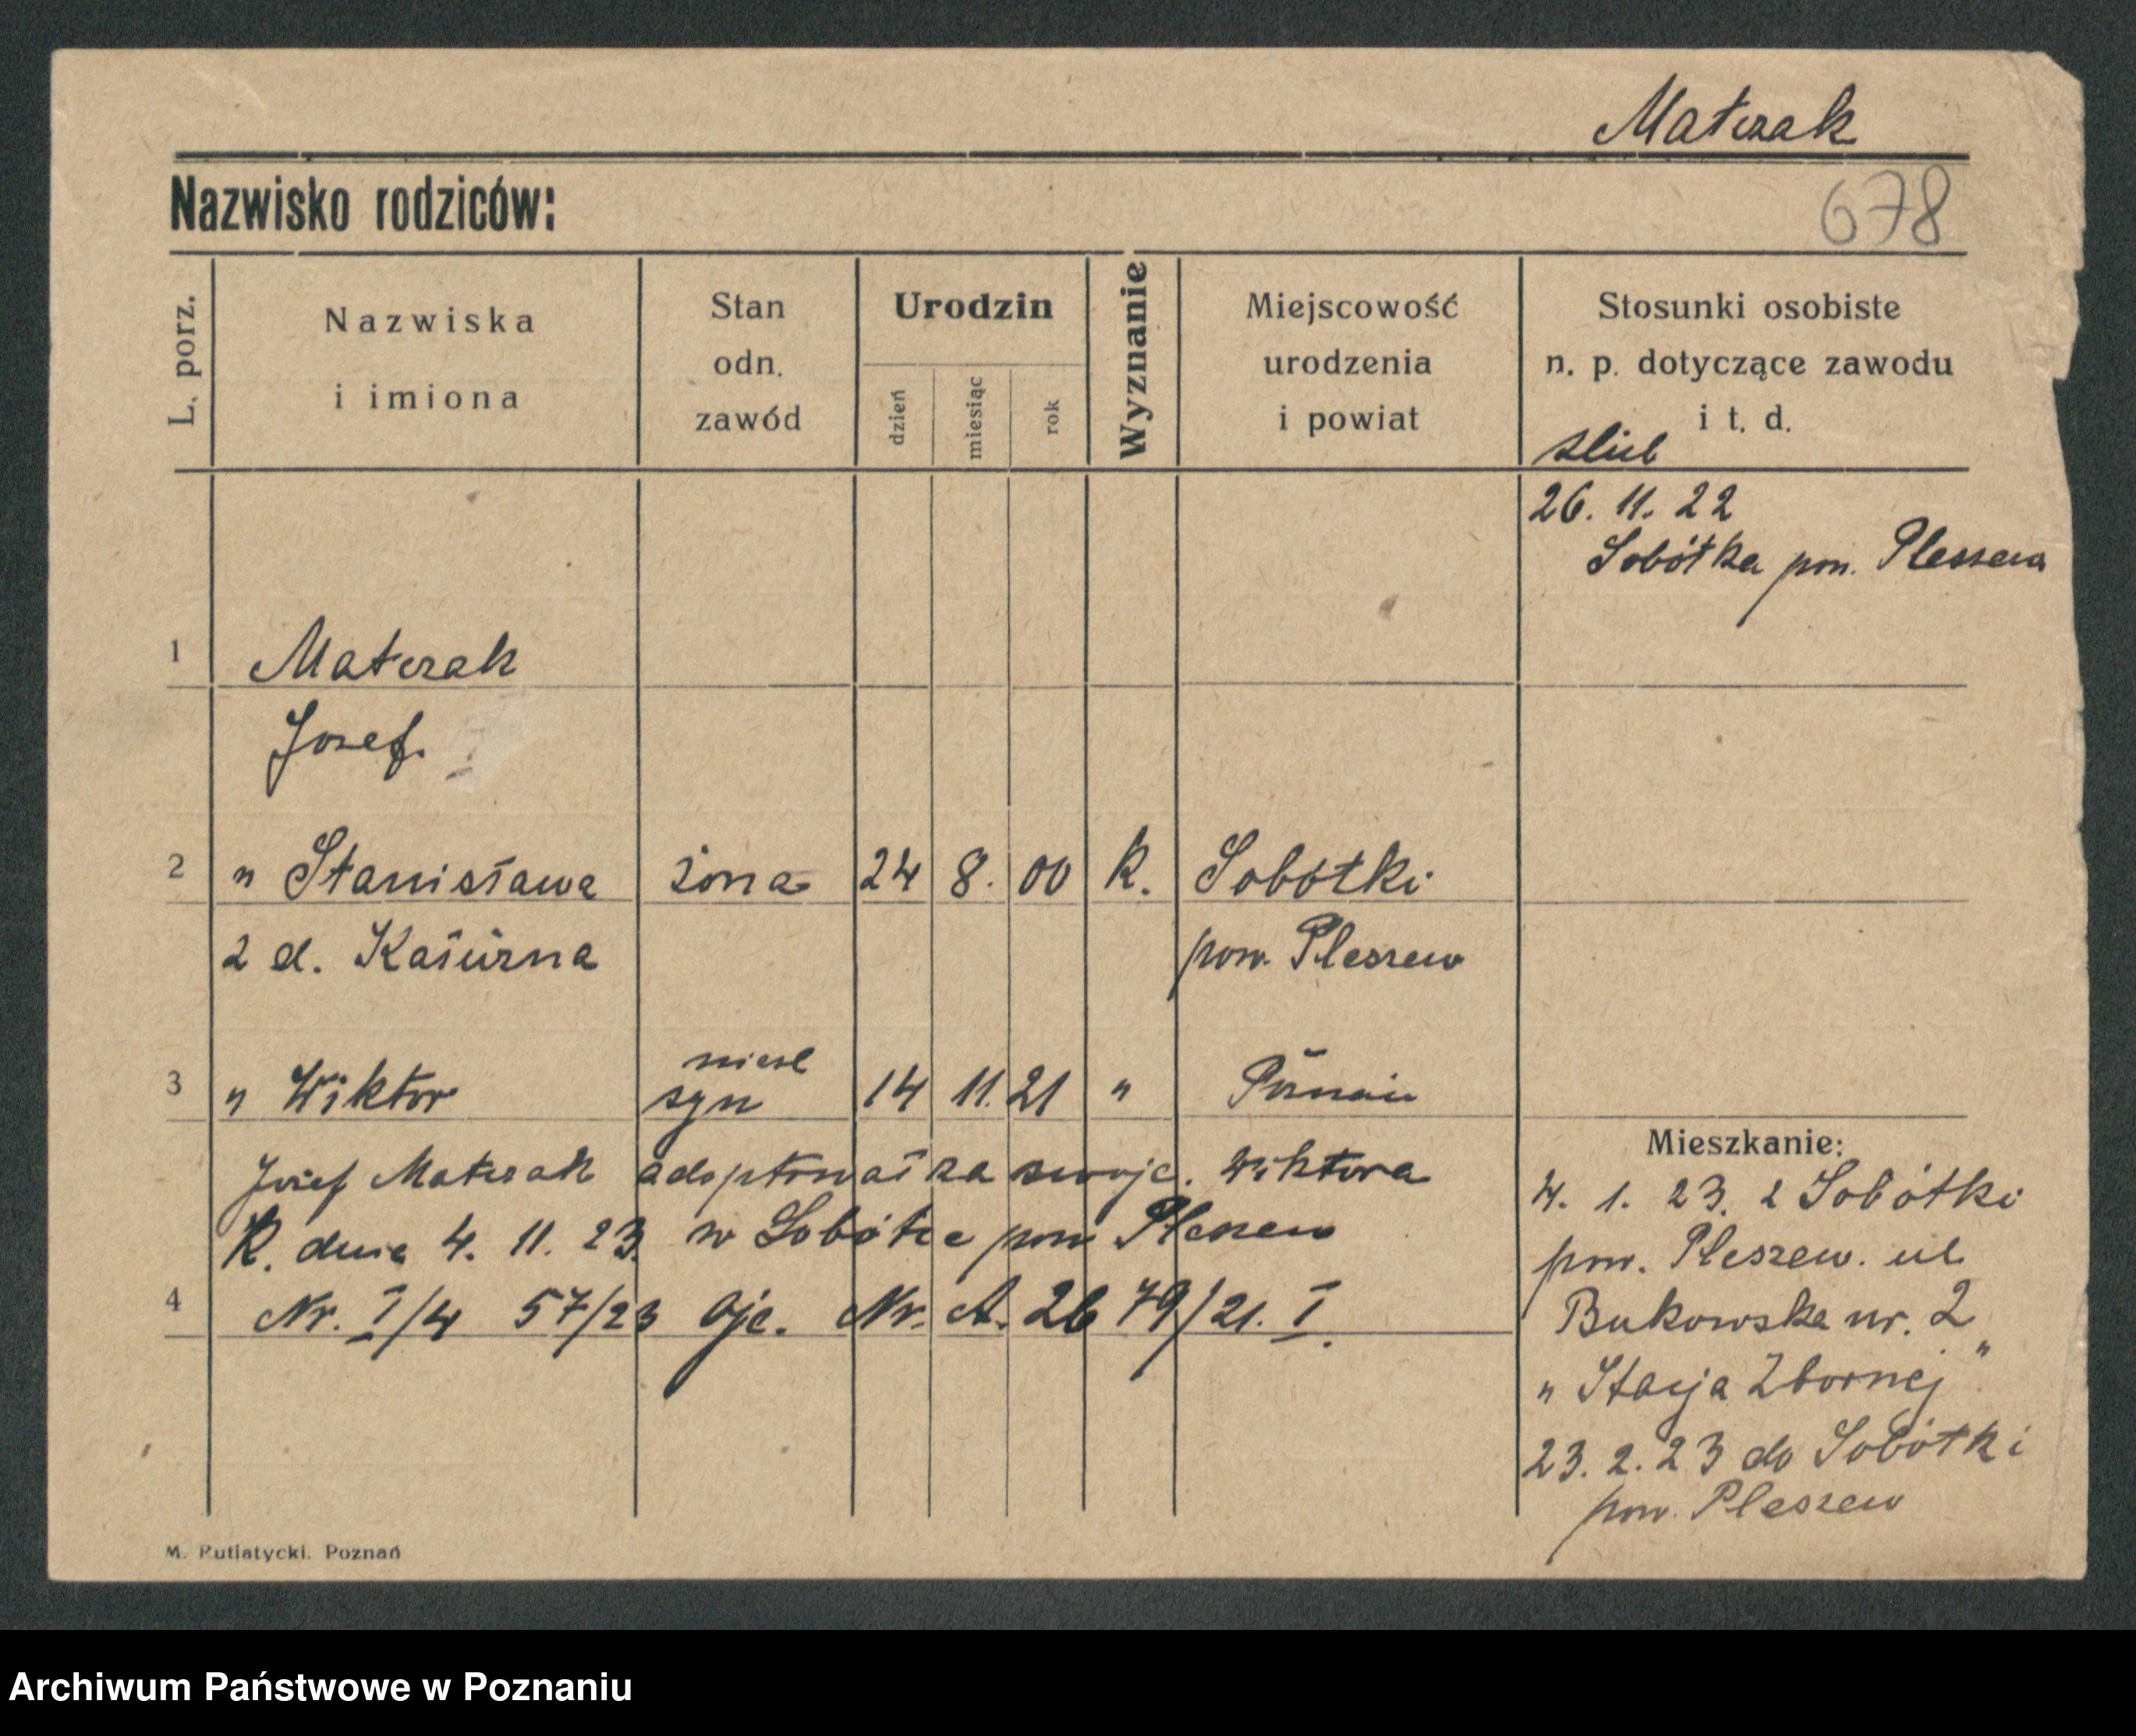 Matczak
Nazwisko rodziców:
678
L. porz.
Nazwiska
i imiona
Stan
odn.
zawód
Urodzin
dzień
miesiąc
rok
Wyznanie
Miejscowość
urodzenia
i powiat
Stosunki osobiste
n. p. dotyczące zawodu
i t. d.
slub
26. 11. 22
Sobótka pow. Pleszew
1 Matczak
Josef.
2 " Stanisława żona 24 8. 00 K. Sobótki
z d. Kaźurna pow. Pleszew
niesl
3 " Wiktor syn 14 11. 21 " Poznań
Josef Matczak adoptował za swoje. Wiktora
K. dnia 4. 11. 23. w Sobótce pow Pleszew
4 Nr. I/4 57/23 Ojc. Nr. A. 26 79/21. I.
Mieszkanie:
4. 1. 23. z Sobótki
pow. Pleszew. ul
Bukowska nr. 2
" Stacja Zbornej "
23. 2. 23 do Sobótki
pow. Pleszew
M. Putiatycki. Poznań
Archiwum Państwowe w Poznaniu